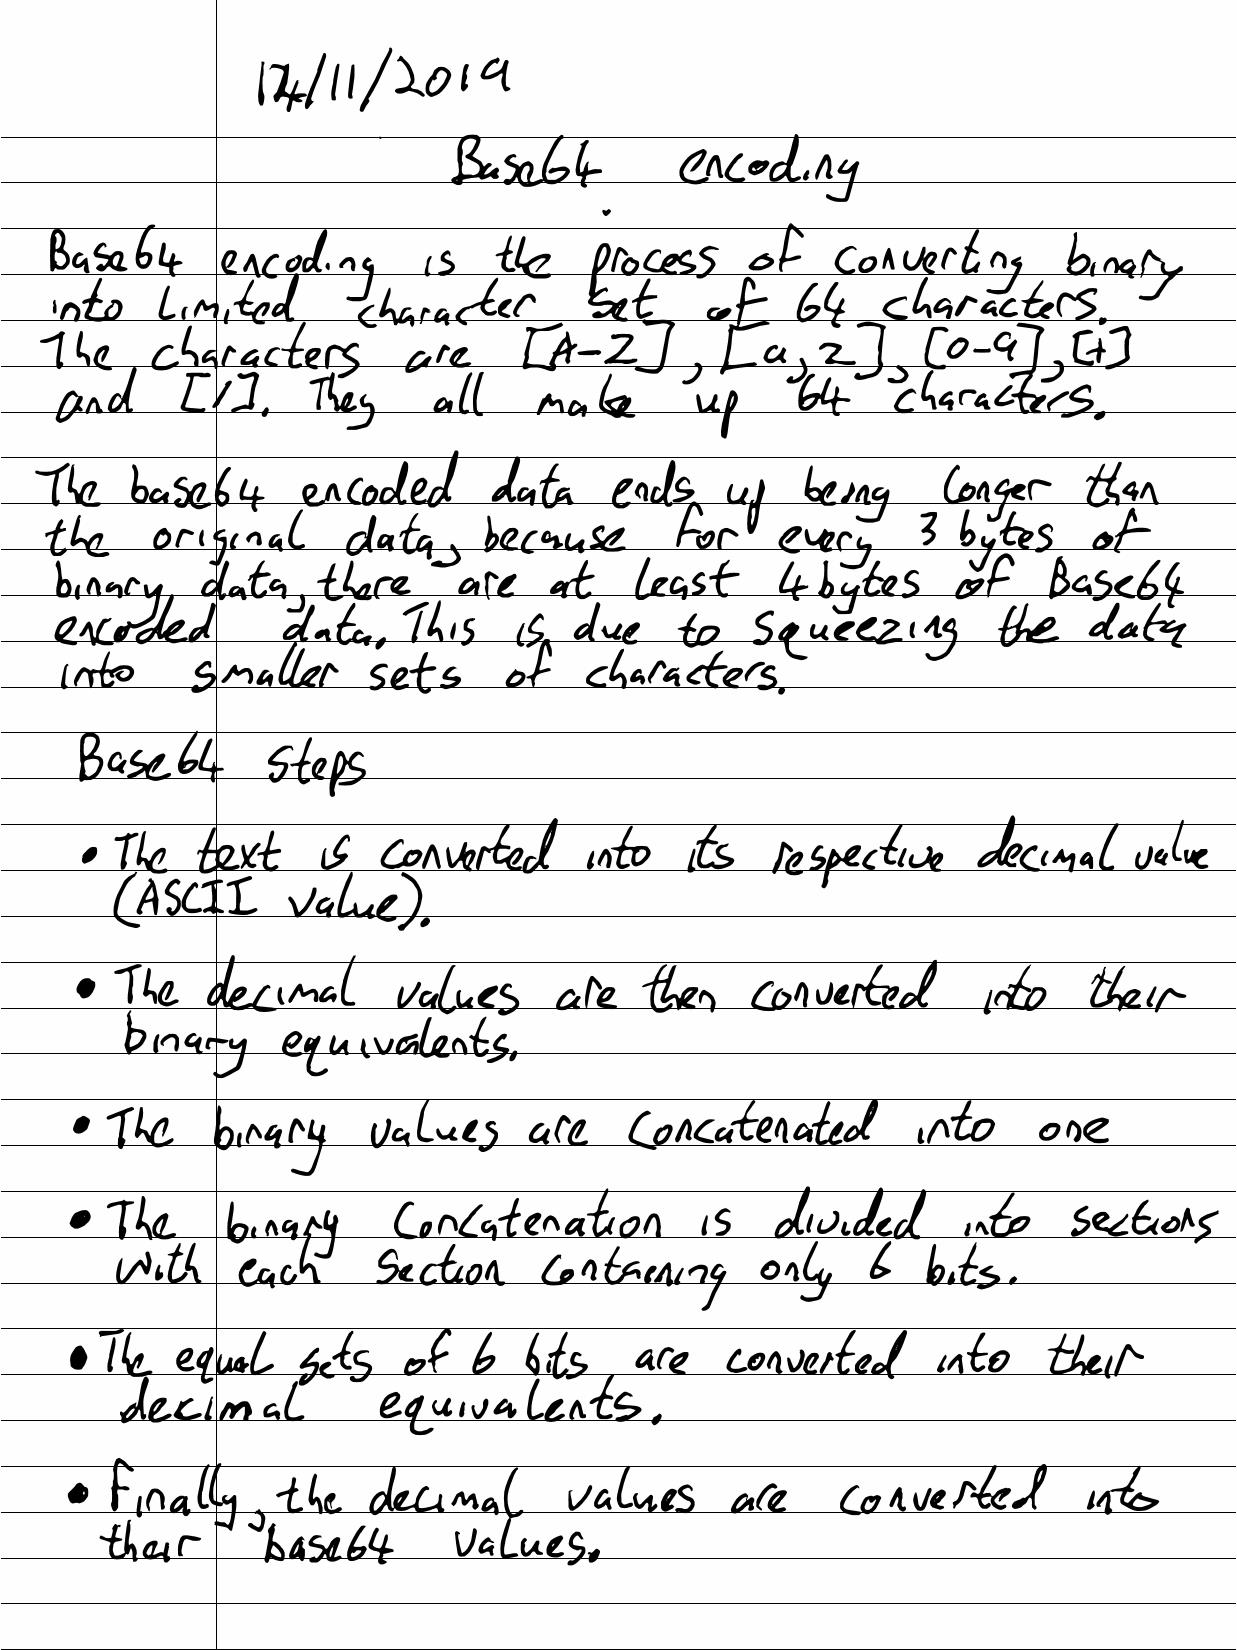 14/11/2019
Base64 encoding
Base64 encoding is the process of converting binary
into limited character set of 64 characters.
The characters are [A-Z], [a,z], [0-9], [+]
and [/]. They all make up 64 characters.
The base64 encoded data ends up being longer than
the original data, because for every 3 bytes of
binary data, there are at least 4 bytes of Base64
encoded data. This is due to squeezing the data
into smaller sets of characters.
Base64 steps
• The text is converted into its respective decimal value
(ASCII value).
• The decimal values are then converted into their
binary equivalents.
• The binary values are concatenated into one
• The binary concatenation is divided into sections
with each section containing only 6 bits.
• The equal sets of 6 bits are converted into their
decimal equivalents.
• Finally, the decimal values are converted into
their base64 values.